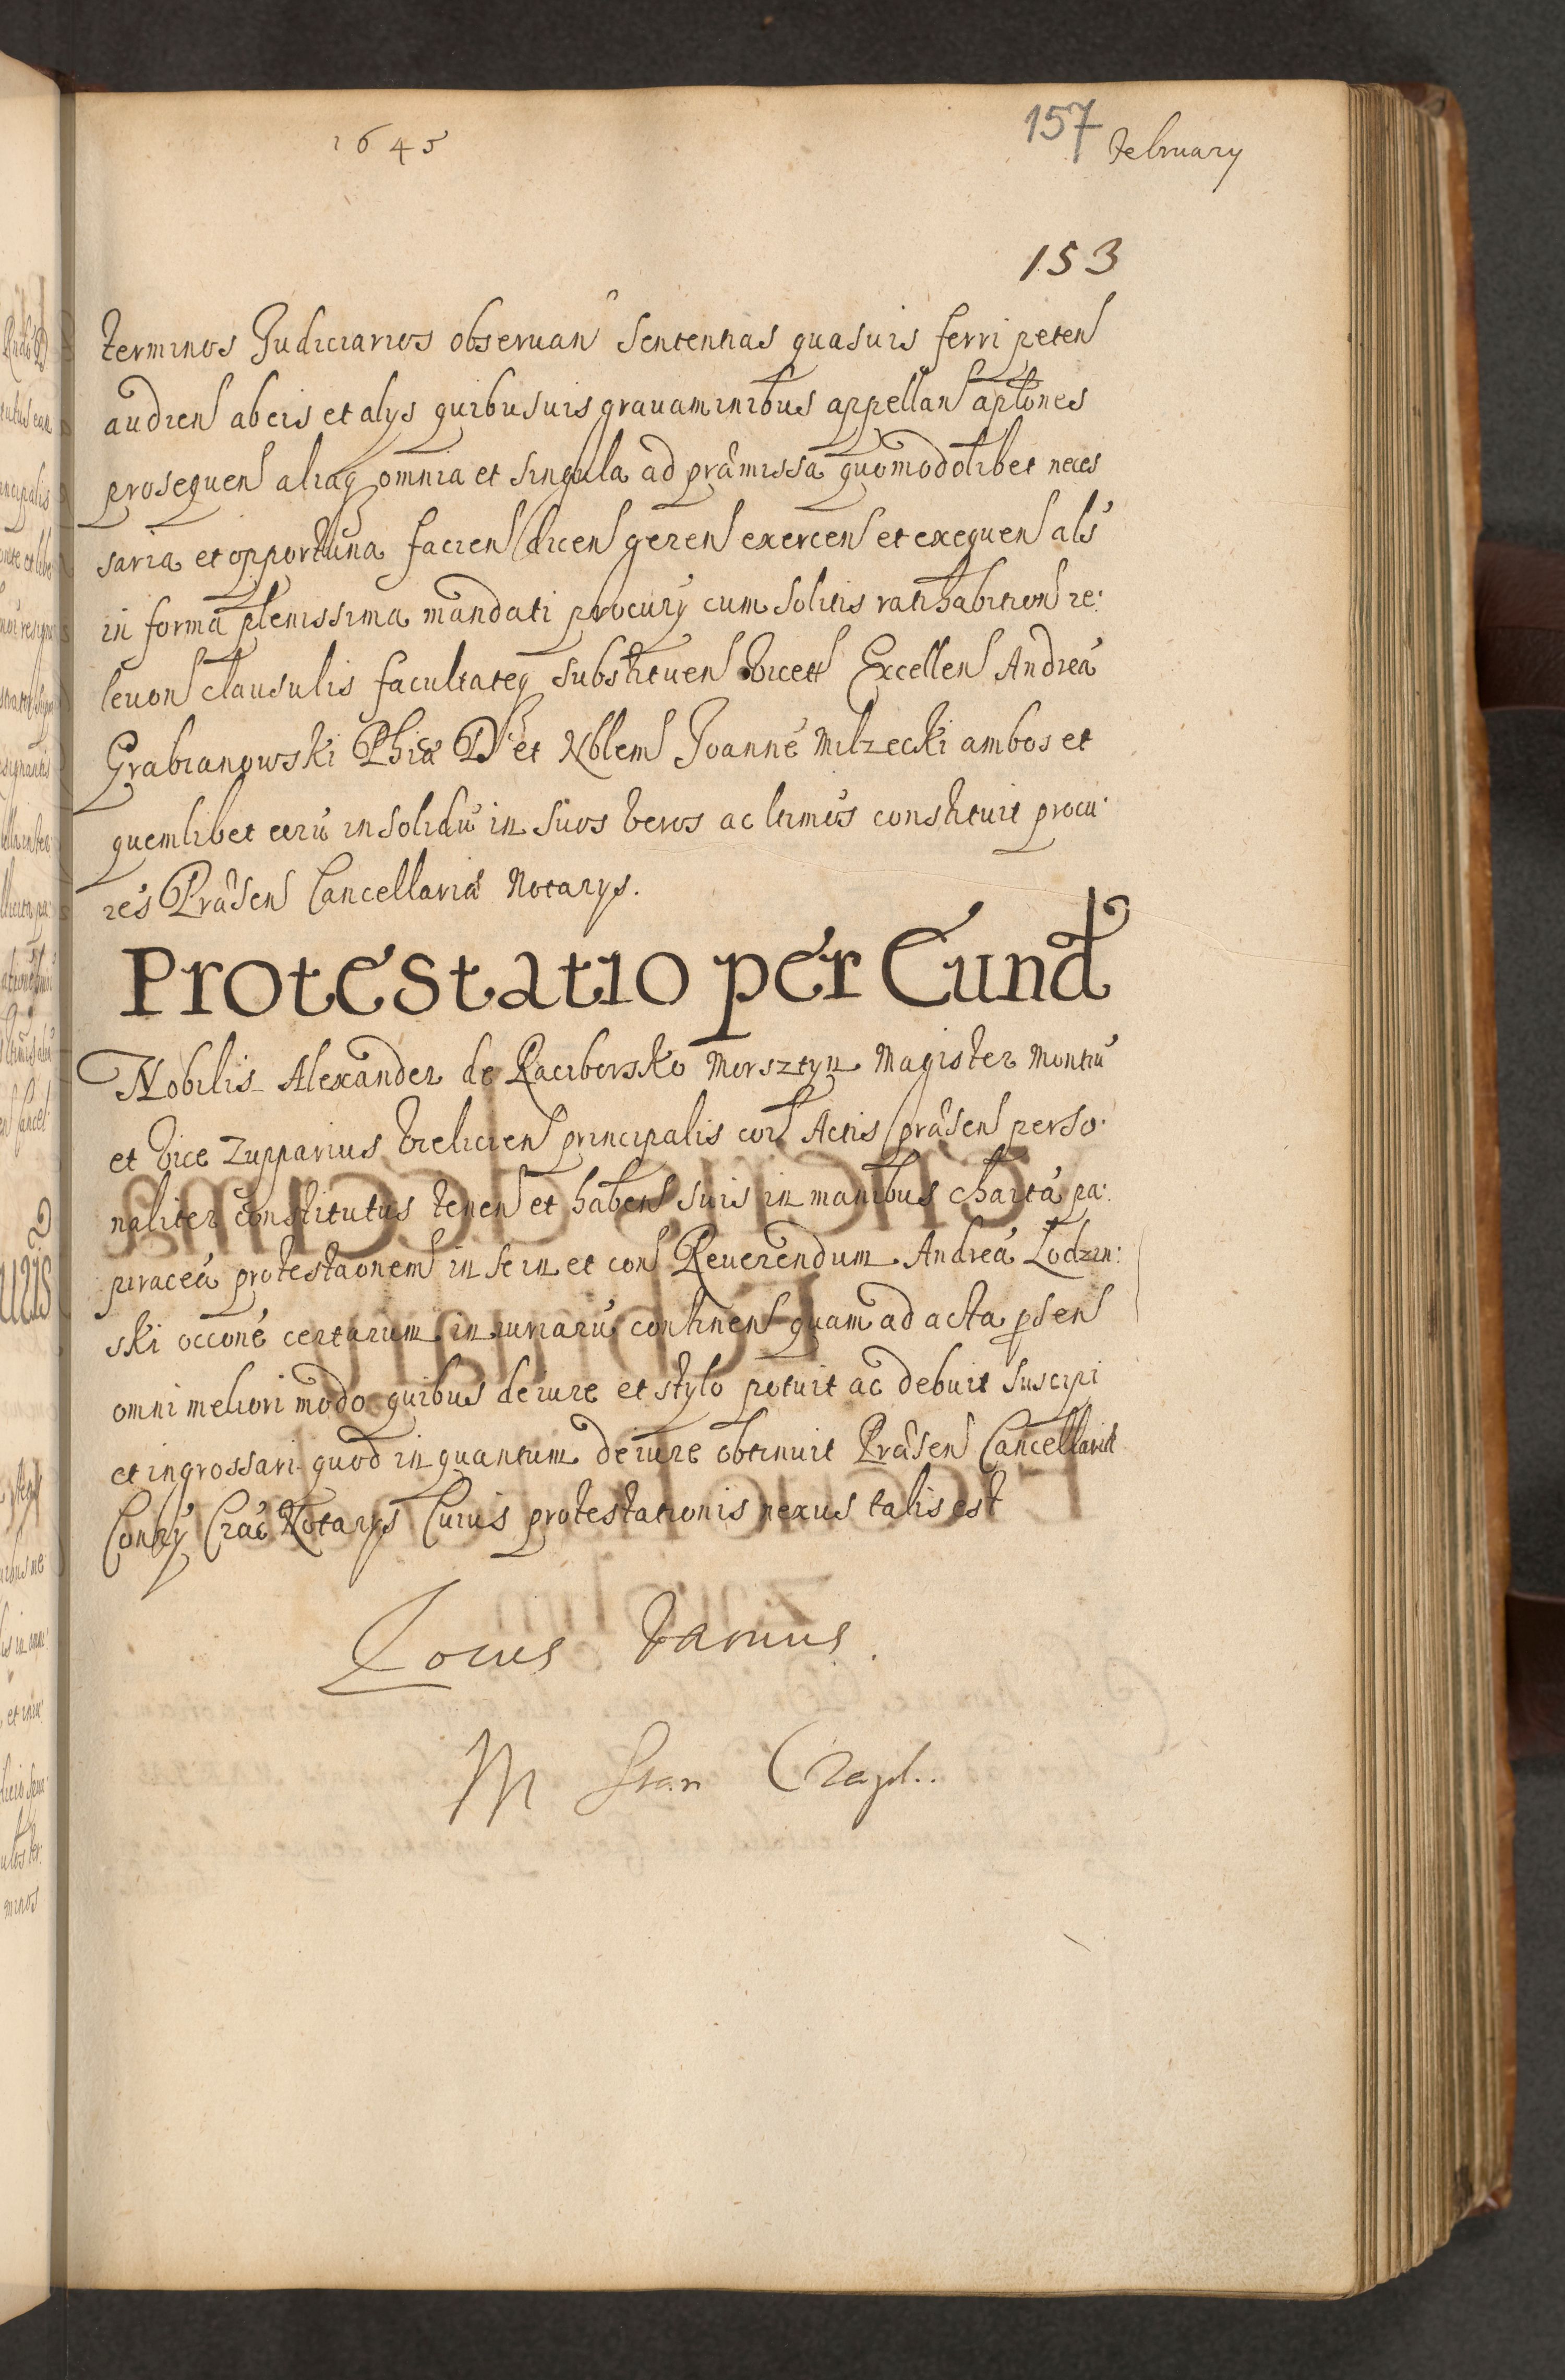 1645
157 February
153
terminos Judiciarios obseruan sententias quasuis ferri peten
audien ab eis et alys quibusuis grauaminibus appellan aplones
prosequen aliaq omnia et singula ad præmissa quomodolibet neces
saria et opportuna facien dicen geren exercen et exequen als
in forma plenissima mandati procury cum solitis ratihabition re:
leuon clausulis facultateq substituen Excellen Andreá
Grabianowski Phiæ D et Nblem Joanné Milzecki ambos et
quemlibet eorú in solidú in suos veros ac ltimos constituit procu:
res Præsen Cancellariæ Notarys.
Protestatio per Eund
Nobilis Alexander de Raciborsko Morsztyn Magister Montiú
et Vice Zupparius Vielicien principalis cor Actis præsen perso:
naliter constitutus tenen et haben suis in manibus chartá pa:
piraceá protestaonem in se in et con Reuerendum Andreá Lodzin:
ski occoné certarum iniuriarú continen quam ad acta psen
omni meliori modo quibus de iure et stylo potuit ac debuit suscipi
et ingrossari quod in quantum de iure obtinuit Præsen Cancellariæ
Consry Crac Notarys Cuius protestationis nexus talis est
Locus Vacuus.
M Stan